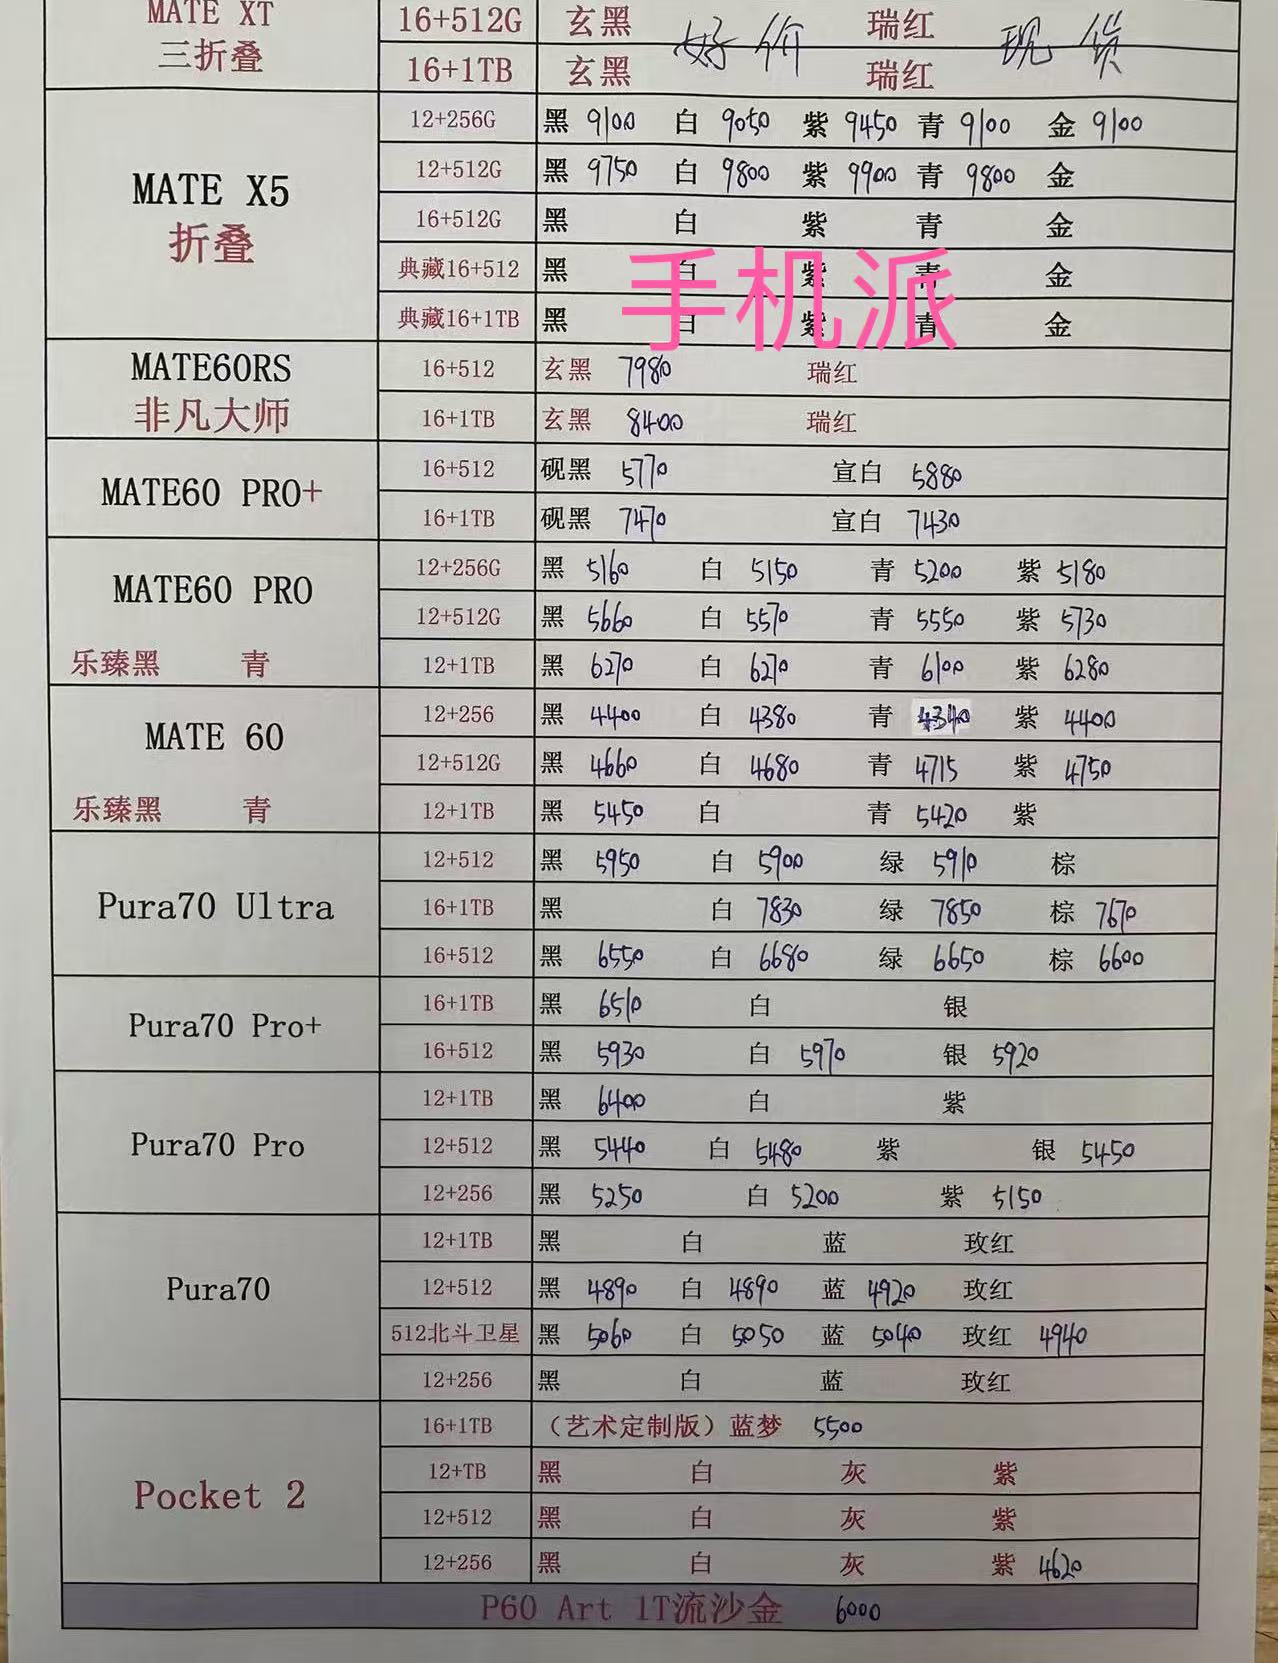 MATE XT 16+512G 玄黑 瑞红
三折叠 好价 现货
16+1TB 玄黑 瑞红
12+256G 黑 9100 白 9050 紫 9450 青 9100 金 9100
12+512G 黑 9750 白 9800 紫 9900 青 9800 金
MATE X5 16+512G 黑 白 紫 青 金
折叠
典藏16+512 黑 白 紫 青 金
手机派
典藏16+1TB 黑 白 紫 青 金
MATE60RS 16+512 玄黑 7980 瑞红
非凡大师 16+1TB 玄黑 8400 瑞红
MATE60 PRO+ 16+512 砚黑 5770 宣白 5880
16+1TB 砚黑 7470 宣白 7430
MATE60 PRO 12+256G 黑 5160 白 5150 青 5200 紫 5180
12+512G 黑 5660 白 5570 青 5550 紫 5730
乐臻黑 青 12+1TB 黑 6270 白 6270 青 6100 紫 6280
MATE 60 12+256 黑 4400 白 4380 青 4340 紫 4400
12+512G 黑 4660 白 4680 青 4715 紫 4750
乐臻黑 青 12+1TB 黑 5450 白 青 5420 紫
12+512 黑 5950 白 5900 绿 5910 棕
Pura70 Ultra 16+1TB 黑 白 7830 绿 7850 棕 7670
16+512 黑 6550 白 6680 绿 6650 棕 6600
Pura70 Pro+ 16+1TB 黑 6510 白 银
16+512 黑 5930 白 5970 银 5920
12+1TB 黑 6400 白 紫
Pura70 Pro 12+512 黑 5440 白 5480 紫 银 5450
12+256 黑 5250 白 5200 紫 5150
12+1TB 黑 白 蓝 玫红
Pura70 12+512 黑 4890 白 4890 蓝 4920 玫红
512北斗卫星 黑 5060 白 5050 蓝 5040 玫红 4940
12+256 黑 白 蓝 玫红
16+1TB （艺术定制版）蓝梦 5500
Pocket 2 12+TB 黑 白 灰 紫
12+512 黑 白 灰 紫
12+256 黑 白 灰 紫 4620
P60 Art 1T流沙金 6000